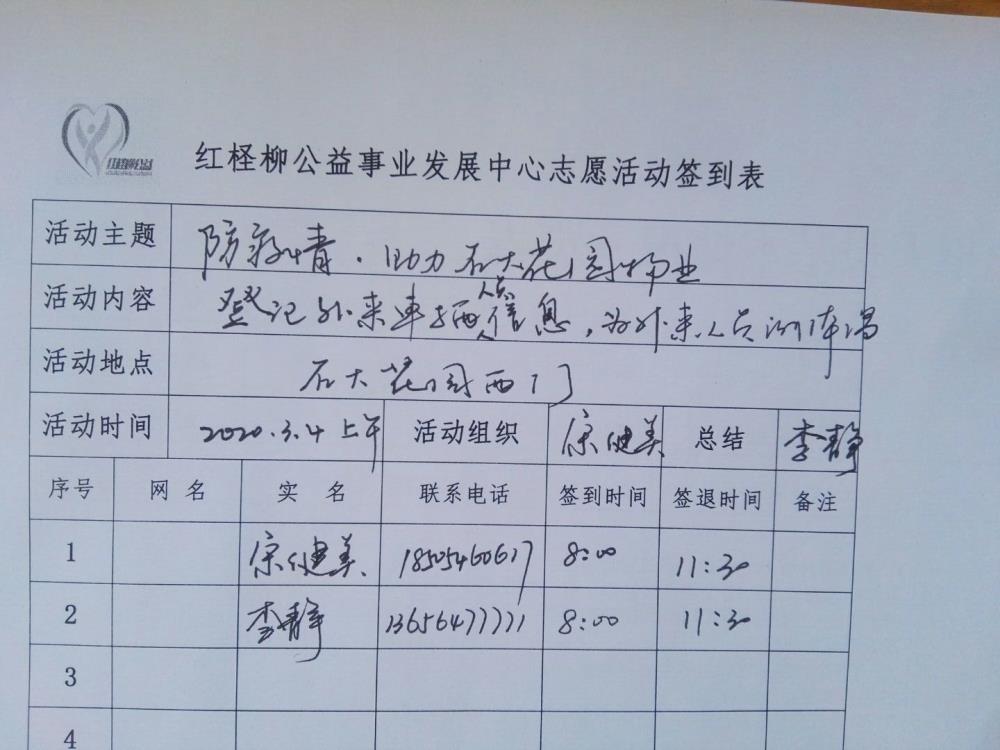 红柽柳公益
红柽柳公益事业发展中心志愿活动签到表
活动主题 防疫情.助力石大花园物业
活动内容 登记外来车辆人员信息,为外来人员测体温
活动地点 石大花园西门
活动时间 2020.3.4上午 活动组织 宗健美 总结 李静
序号 网名 实名 联系电话 签到时间 签退时间 备注
1 宗健美 18505460617 8:00 11:30
2 李静 13656477771 8:00 11:30
3
4